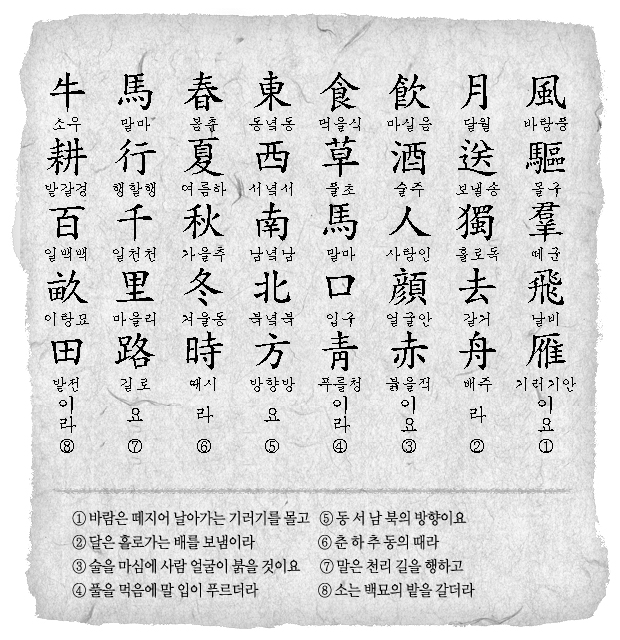 風 바람풍 驅 몰구 羣 떼군 飛 날비 雁 기러기안 이요 ①
月 달월 送 보낼송 獨 홀로독 去 갈거 舟 배주 라 ②
飮 마실음 酒 술주 人 사람인 顔 얼굴안 赤 붉을적 이요 ③
食 먹을식 草 풀초 馬 말마 口 입구 靑 푸를청 이라 ④
東 동녘동 西 서녘서 南 남녘남 北 북녘북 方 방향방 요 ⑤
春 봄춘 夏 여름하 秋 가을추 冬 겨울동 時 때시 라 ⑥
馬 말마 行 행할행 千 일천천 里 마을리 路 길로 요 ⑦
牛 소우 耕 밭갈경 百 일백백 畝 이랑묘 田 밭전 이라 ⑧
① 바람은 떼지어 날아가는 기러기를 몰고
② 달은 홀로가는 배를 보냄이라
③ 술을 마심에 사람 얼굴이 붉을 것이요
④ 풀을 먹음에 말 입이 푸르더라
⑤ 동 서 남 북의 방향이요
⑥ 춘 하 추 동의 때라
⑦ 말은 천리 길을 행하고
⑧ 소는 백묘의 밭을 갈더라